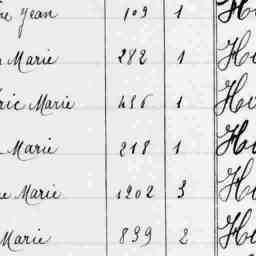 Jean 109 1 H
Marie 282 1 H
ric Marie 456 1 H
Marie 218 1 H
e Marie 1202 3 H
Marie 839 2 H